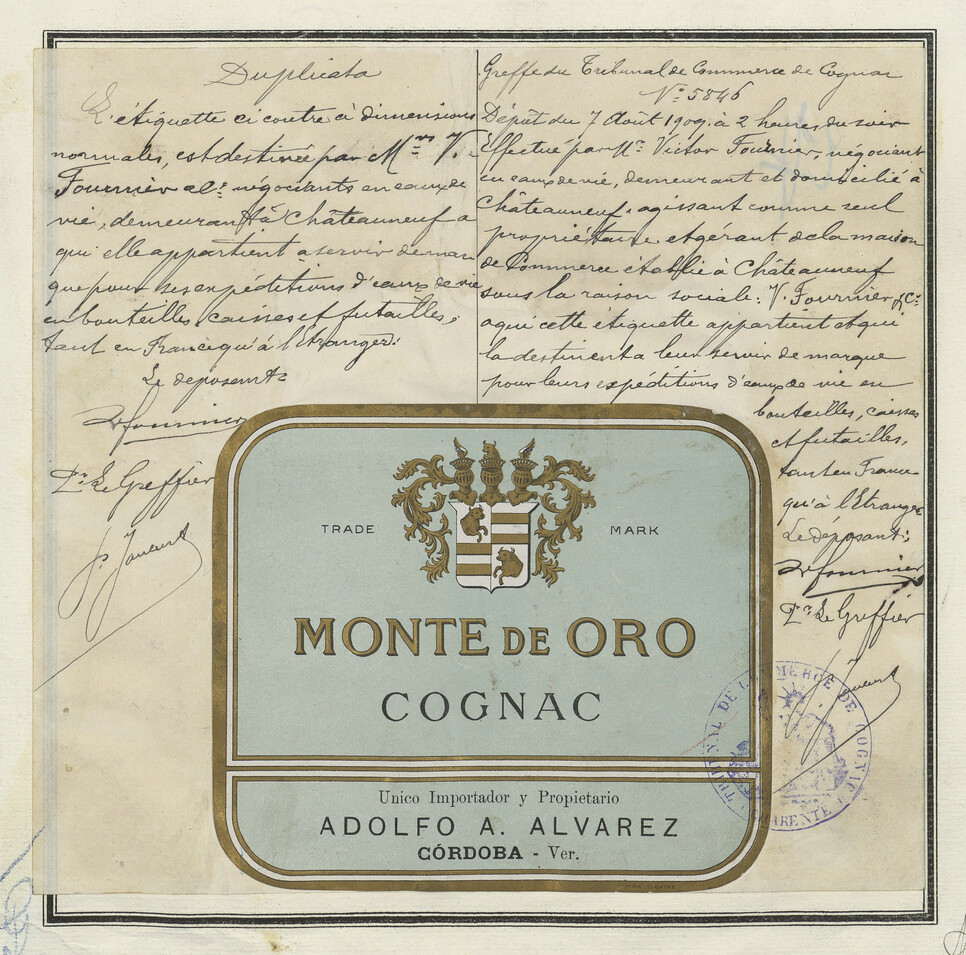 Duplicata
L'étiquette ci contre à dimensions
normales, est destinée par M.rs V.
Fournier & Cie négociants en eaux de
vie, demeurant à Châteauneuf a
qui elle appartient a servir de mar
que pour ses expéditions d'eaux de vie
en bouteilles, caisses et futailles,
tant en France qu'à l'Etranger.
Le déposant:
V Fournier
Pr Le Greffier
Greffe du Tribunal de Commerce de Cognac
No 5846
Dépôt du 7 Août 1909, à 2 heures du soir
Effectué par Mr. Victor Fournier, négociant
en eaux de vie, demeurant et domicilié à
Châteauneuf, agissant comme seul
propriétaire et gérant de la maison
de Commerce établie à Châteauneuf
sous la raison sociale: V. Fournier & Cie
a qui cette étiquette appartient et qui
la destinent a leur servir de marque
pour leurs expéditions d'eaux de vie en
bouteilles, caisses
et futailles,
tant en France
qu'à l'Etranger
Le déposant:
V Fournier
Pr Le Greffier
TRADE MARK
MONTE DE ORO
COGNAC
Unico Importador y Propietario
ADOLFO A. ALVAREZ
CÓRDOBA - Ver.
TRIBUNAL DE COMMERCE DE COGNAC
CHARENTE